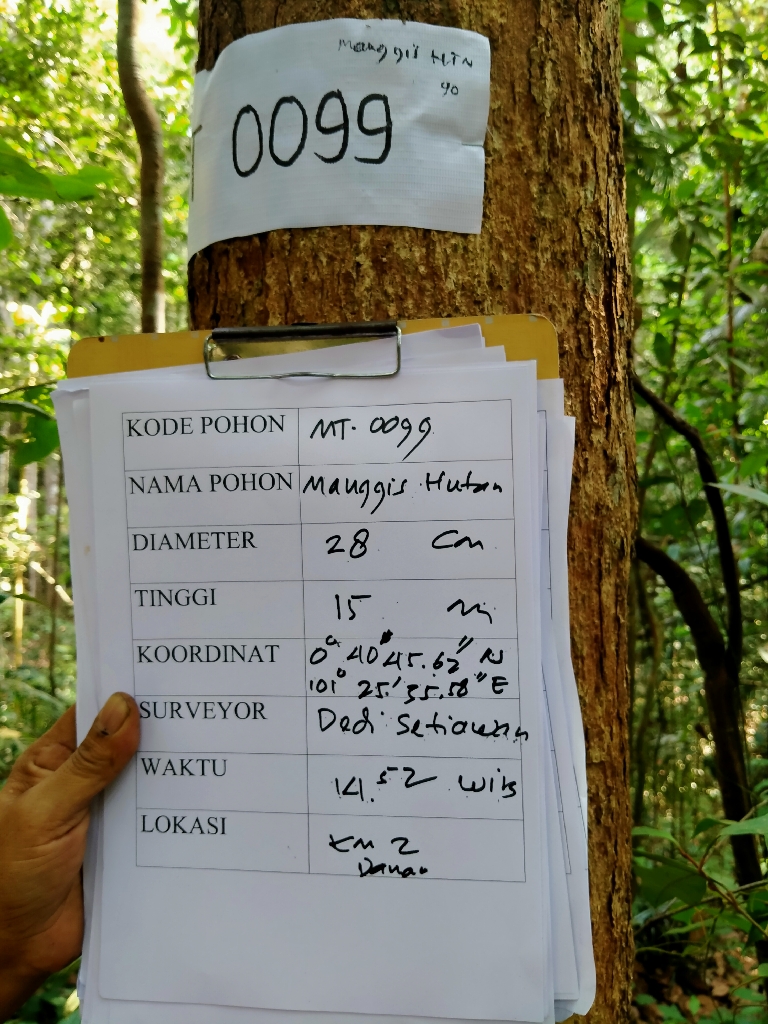 Manggis HTN
90
T 0099
KODE POHON MT. 0099
NAMA POHON Manggis Hutan
DIAMETER 28 Cm
TINGGI 15 m
KOORDINAT 0° 40" 45.62" N
101° 25.' 35.58" E
SURVEYOR Dedi Setiawan
WAKTU 14.52 wib
LOKASI KM 2
Danau